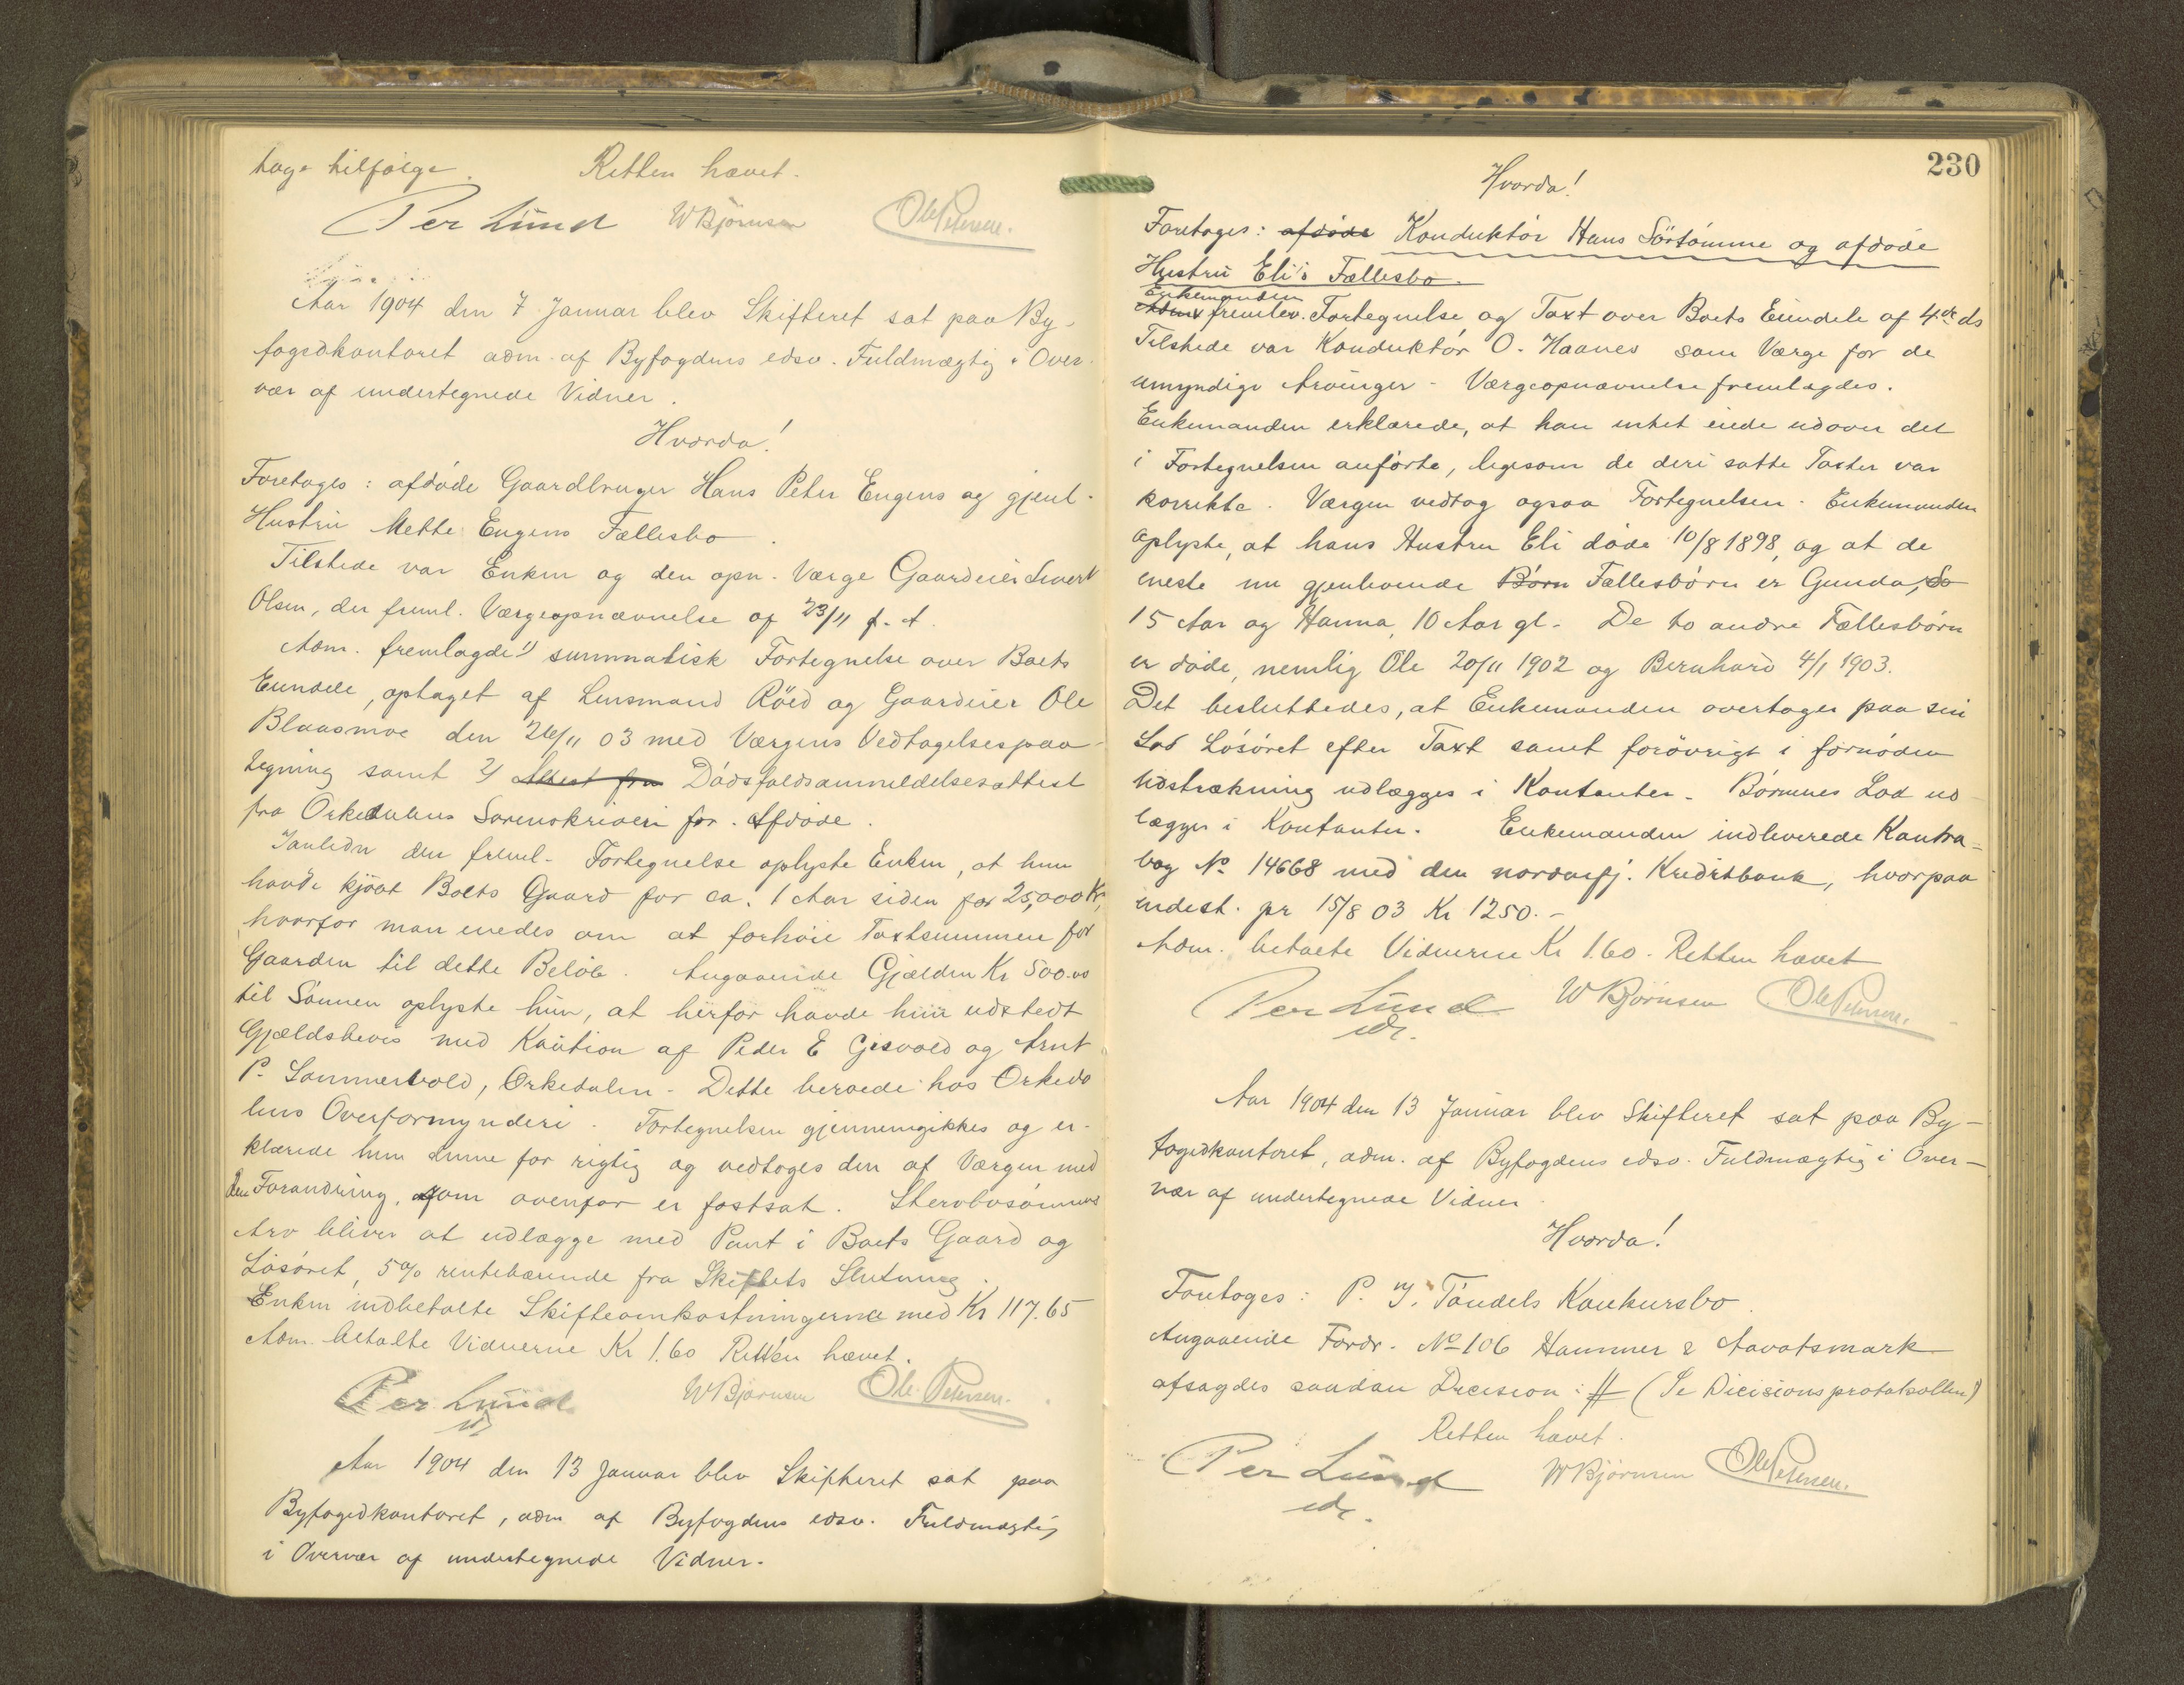 tage tilfølge. Retten hævet.
Per Lund WBjørnsen Ole Petersen.
Aar 1904 den 7 Januar blev Skifteret sat paa By-
fogedkontoret adm. af Byfogdens edsv. Fuldmægtig i Over-
vær af undertegnede Vidner.
Hvorda!
Foretoges: afdøde Gaardbruger Hans Peter Engens og gjenl.
Hustru Mette Engens Fællesbo.
Tilstede var Enken og den opn. Værge Gaardeier Sivert
Olsen, der freml. Værgeopnævnelse af 23/11 f. A.
Adm. fremlagde 1) summatisk Fortegnelse over Boets
Eiendele, optaget af Lensmand Röed og Gaardeier Ole
Blaasmoe den 26/11 03 med Værgens Vedtagelsespaa-
tegning samt 2) Attest fra Dødsfaldsanmeldelsesattest
fra Orkedalens Sorenskriveri for Afdøde.
Ianledn den freml. Fortegnelse oplyste Enken, at hun
havde kjøbt Boets Gaard for ca. 1 Aar siden for 25,000 Kr,
hvorfor man enedes om at forhøie Taxtsummen for
Gaarden til dette Beløb. Angaaende Gjælden Kr 500.00
til Sønnen oplyste hun, at herfor havde hun udstedt
Gjældsbevis med Kaution af Peder E Gjsvold og Arnt
P. Sommervold, Orkedalen. Dette beroede hos Orkeda
lens Overformynderi. Fortegnelsen gjennemgikkes og er-
klærede hun denne for rigtig og vedtoges den af Værgen med
den Forandring, som ovenfor er fastsat. Stervbosønnens
Arv bliver at udlægge med Pant i Boets Gaard og
Løsøret, 5% rentebærende fra Skiftets Slutning.
Enken indbetalte Skifteomkostningerne med Kr 117.65
Adm. betalte Vidnerne Kr 1.60 Retten hævet.
Per Lund WBjørnsen Ole Petersen.
Aar 1904 den 13 Januar blev Skifteret sat paa
Byfogedkontoret, adm af Byfogdens edsv. Fuldmægtig
i Overvær af undertegnede Vidner.
230
Hvorda!
Foretoges: afdøde Konduktør Hans Sörtömme og afdøde
Hustru Eli's Fællesbo.
Enkemanden
Adm. fremlev. Fortegnelse og Taxt over Boets Eiendele af 4de ds
Tilstede var Konduktør O. Haanes som Værge for de
umyndige Arvinger - Værgeopnævnelse fremlagdes.
Enkemanden erklærede, at han intet eiede udover det
i Fortegnelsen anførte, ligesom de deri satte Taxter var
korrekte. Værgen vedtog ogsaa Fortegnelsen. Enkemanden
oplyste, at hans Hustru Eli døde 10/8 1898, og at de
eneste nu gjenlevende Børn Fællesbørn er Gunda, So
15 Aar og Hanna, 10 Aar gl. De to andre Fællesbørn
er døde, nemlig Ole 20/11 1902 og Bernhard 4/1 1903.
Det besluttedes, at Enkemanden overtager paa sin
Lod Løsøret efter Taxt samt forøvrigt i fornøden
Udstrækning udlægges i Kontanter. Børnenes Lod ud
lægges i Kontanter. Enkemanden indleverede Kontra-
bog No 14668 med den nordenfj. Kreditbank, hvorpaa
indest. pr 15/8 03 Kr 1250.-
Adm. betalte Vidnerne Kr 1.60. Retten hævet
Per Lund WBjørnsen Ole Petersen.
edsv.
Aar 1904 den 13 Januar blev Skifteret sat paa By-
fogedkontoret, adm. af Byfogdens edsv. Fuldmægtig i Over-
vær af undertegnede Vidner.
Hvorda!
Foretoges: P. Töndels Konkursbo.
Angaaende Fordr. No 106 Hammer & Aavatsmark
afsagdes saadan Decision: # (Se Dicisionsprotokollen)
Retten hævet.
Per Lund WBjørnsen Ole Petersen.
edsv.